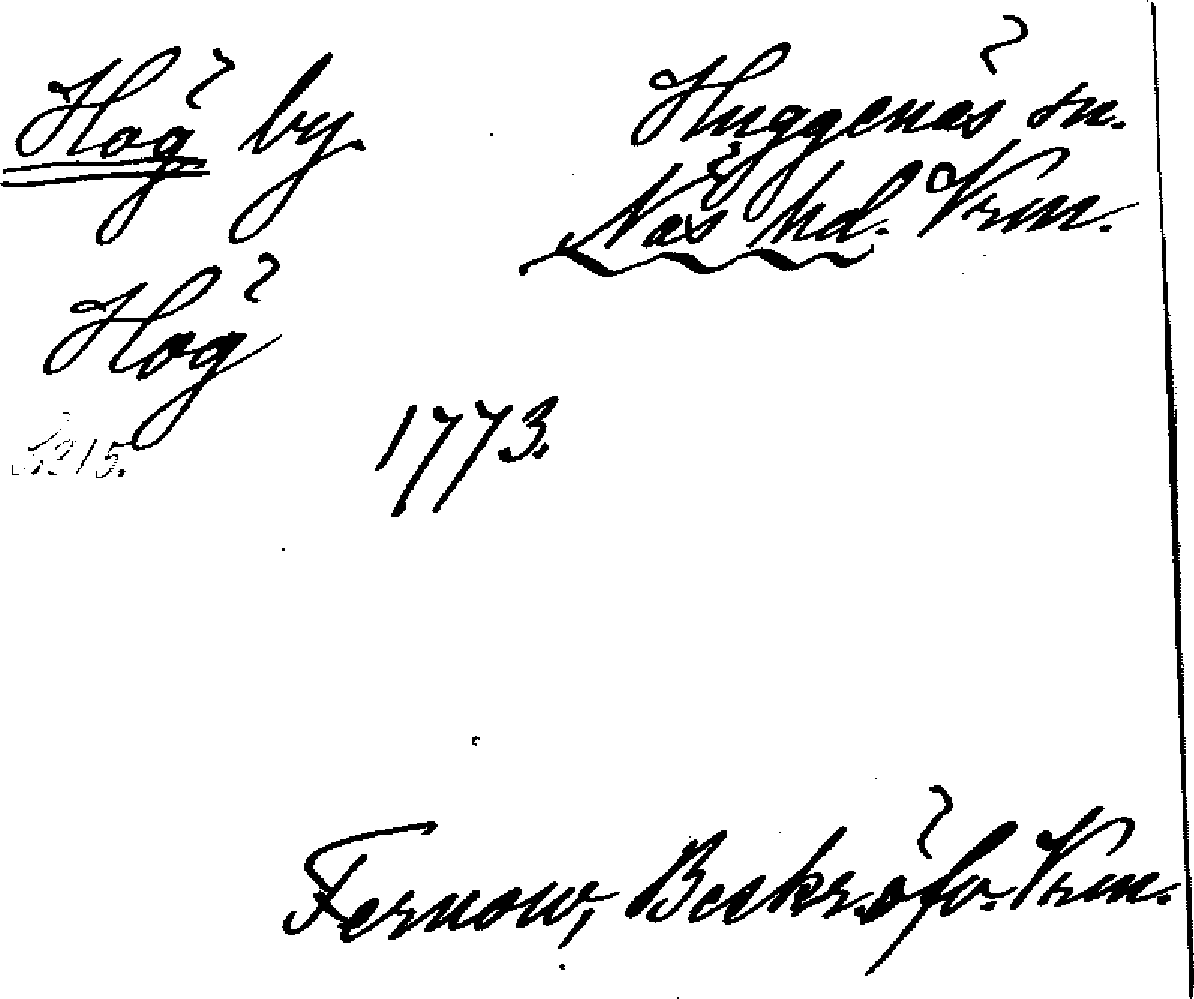 Hög by. Huggenäs sn.
Näs hd. Vrm.
Hög
S. 215. 1773.
Fernow, Beskr. öfv. Vrm.